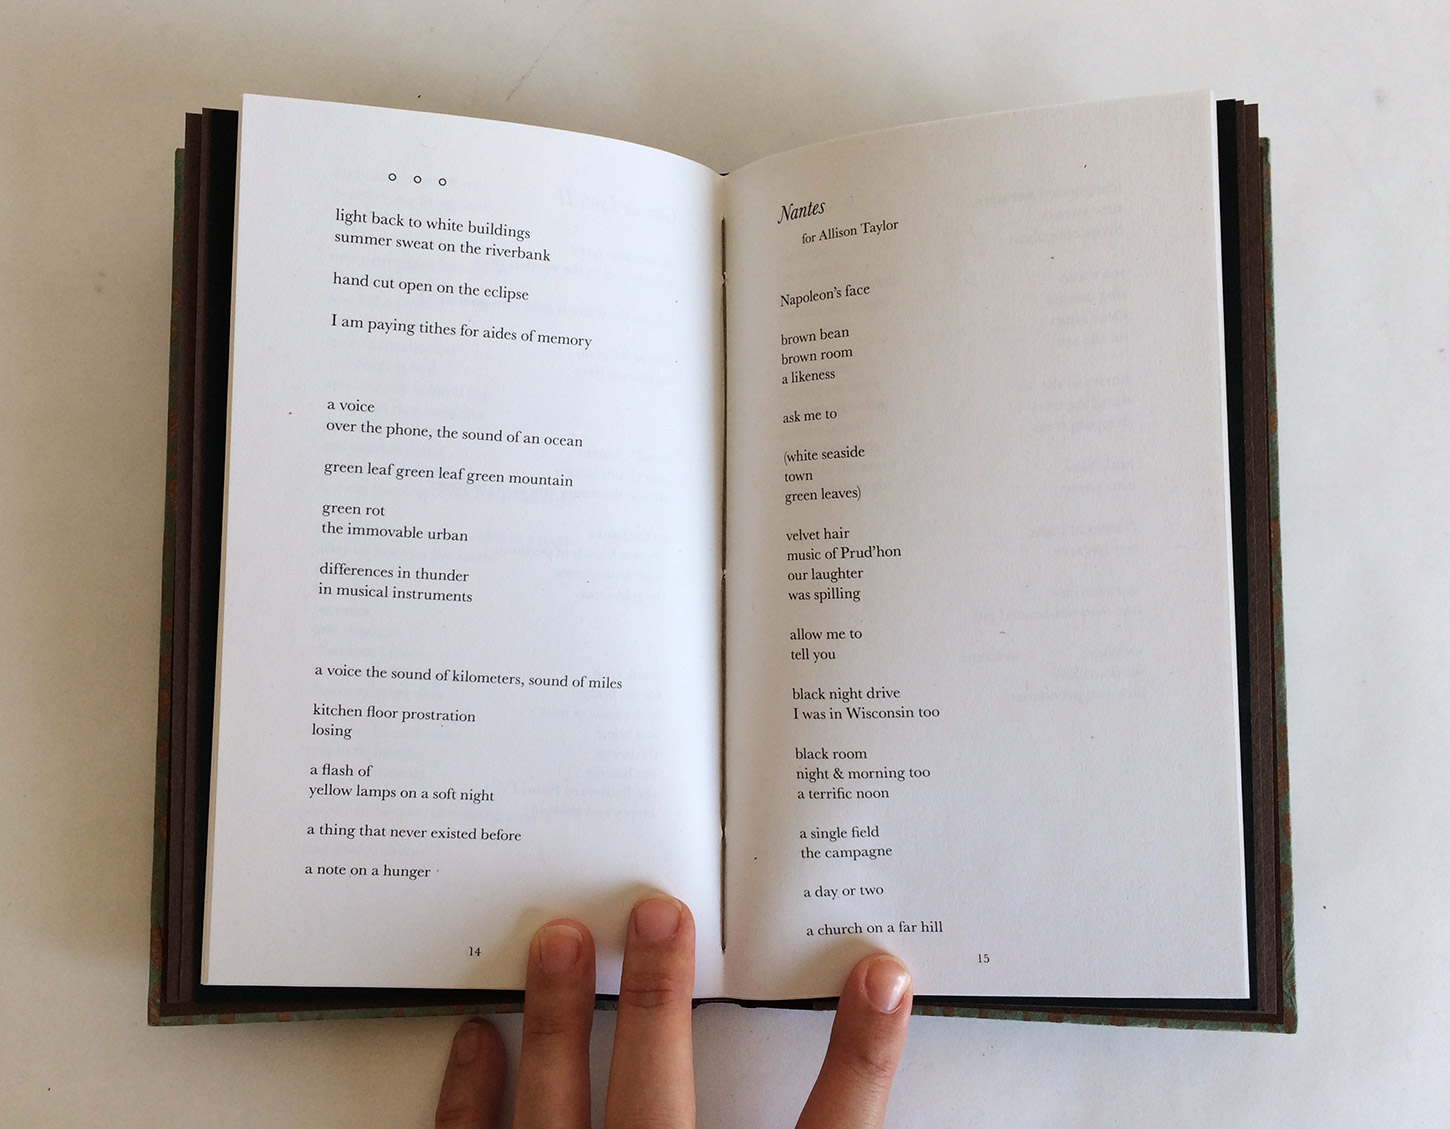 light back to white buildings
summer sweat on the riverbank
hand cut open on the eclipse
I am paying tithes for aides of memory
a voice
over the phone, the sound of an ocean
green leaf green leaf green mountain
green rot
the immovable urban
differences in thunder
in musical instruments
a voice the sound of kilometers, sound of miles
kitchen floor prostration
losing
a flash of
yellow lamps on a soft night
a thing that never existed before
a note on a hunger
14
Nantes
for Allison Taylor
Napoleon's face
brown bean
brown room
a likeness
ask me to
(white seaside
town
green leaves)
velvet hair
music of Prud'hon
our laughter
was spilling
allow me to
tell you
black night drive
I was in Wisconsin too
black room
night & morning too
a terrific noon
a single field
the campagne
a day or two
a church on a far hill
15